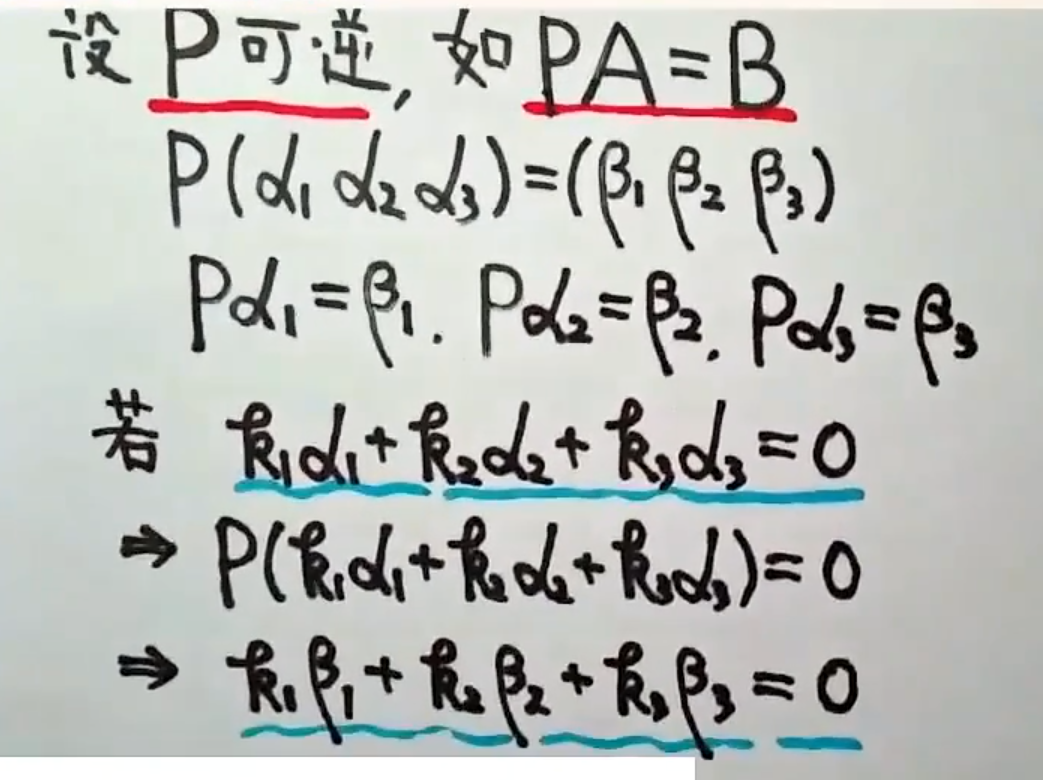 设 P可逆, 如 PA=B
P(α₁ α₂ α₃)=(β₁ β₂ β₃)
Pα₁=β₁. Pα₂=β₂. Pα₃=β₃
若 k₁α₁+k₂α₂+k₃α₃=0
⇒ P(k₁α₁+k₂α₂+k₃α₃)=0
⇒ k₁β₁+k₂β₂+k₃β₃=0